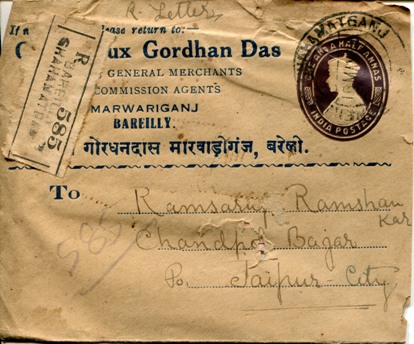 R. Letter
If n ease return to:-
G ux Gordhan Das
GENERAL MERCHANTS
COMMISSION AGENTS
MARWARIGANJ
BAREILLY
गोरधनदास मारवाड़ीगंज, बरेली.
R
BAREI
SHAHAMATGA
585
SHAHAMATGANJ
INDIA POSTAGE
To
Ramsaruy Ramshan
Kar
Chandpol Bajar
Po. Jaipur-City
585